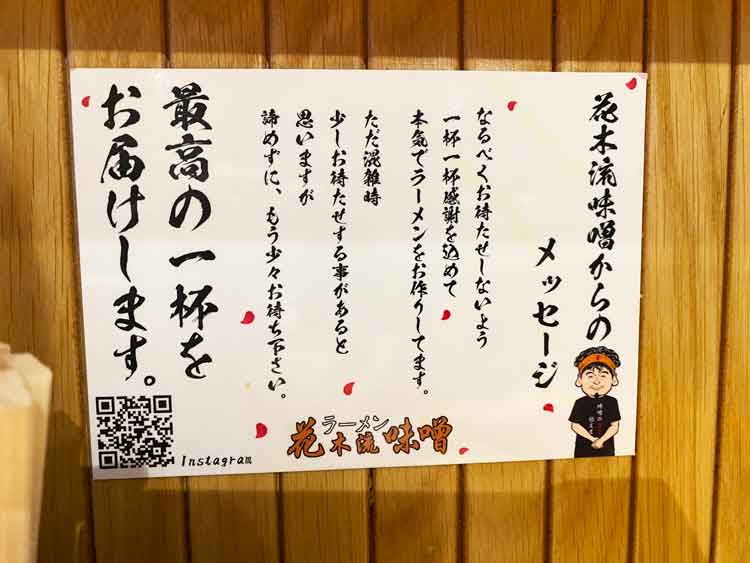 花木流味噌からの
メッセージ
なるべくお待たせしないよう
一杯一杯感謝を込めて
本気でラーメンをお作りしてます。
ただ混雑時
少しお待たせする事があると
思いますが
諦めずに、もう少々お待ち下さい。
最高の一杯を
お届けします。
ラーメン
花木流味噌
Instagram